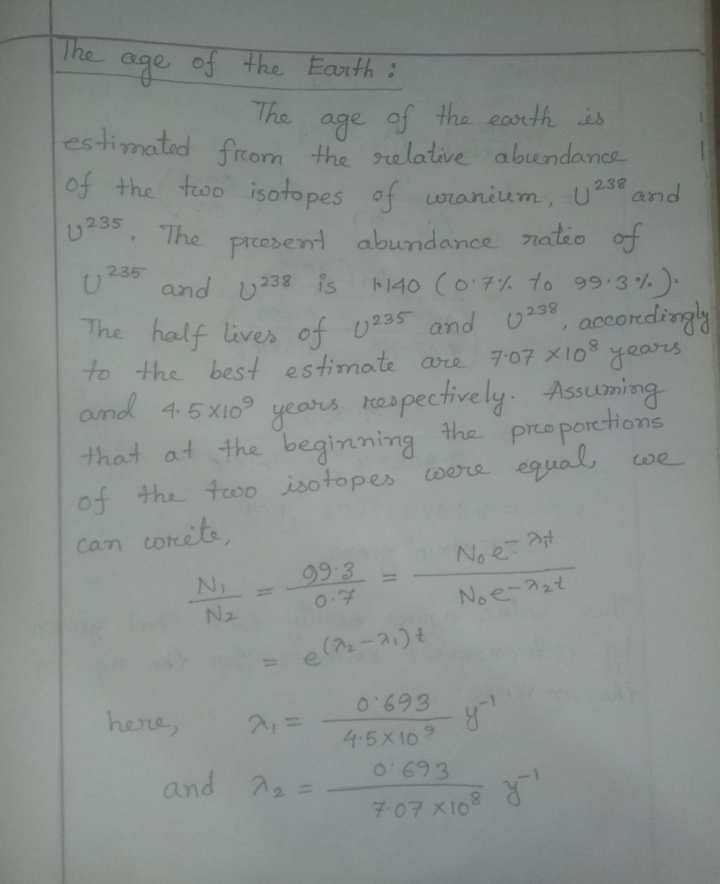 The age of the Earth :
The age of the earth is
estimated from the relative abundance
of the two isotopes of uranium, U²³⁸ and
U²³⁵. The present abundance ratio of
U²³⁵ and U²³⁸ is 1:140 (0.7% to 99.3%).
The half lives of U²³⁵ and U²³⁸, accordingly
to the best estimate are 7.07 × 10⁸ years
and 4.5 × 10⁹ years respectively. Assuming
that at the beginning the proportions
of the two isotopes were equal, we
can write,
N₁/N₂ = 99.3/0.7 = N₀e^(-λ₁t)/N₀e^(-λ₂t)
= e^((λ₂-λ₁)t)
here, λ₁ = 0.693/(4.5 × 10⁹) y⁻¹
and λ₂ = 0.693/(7.07 × 10⁸) y⁻¹